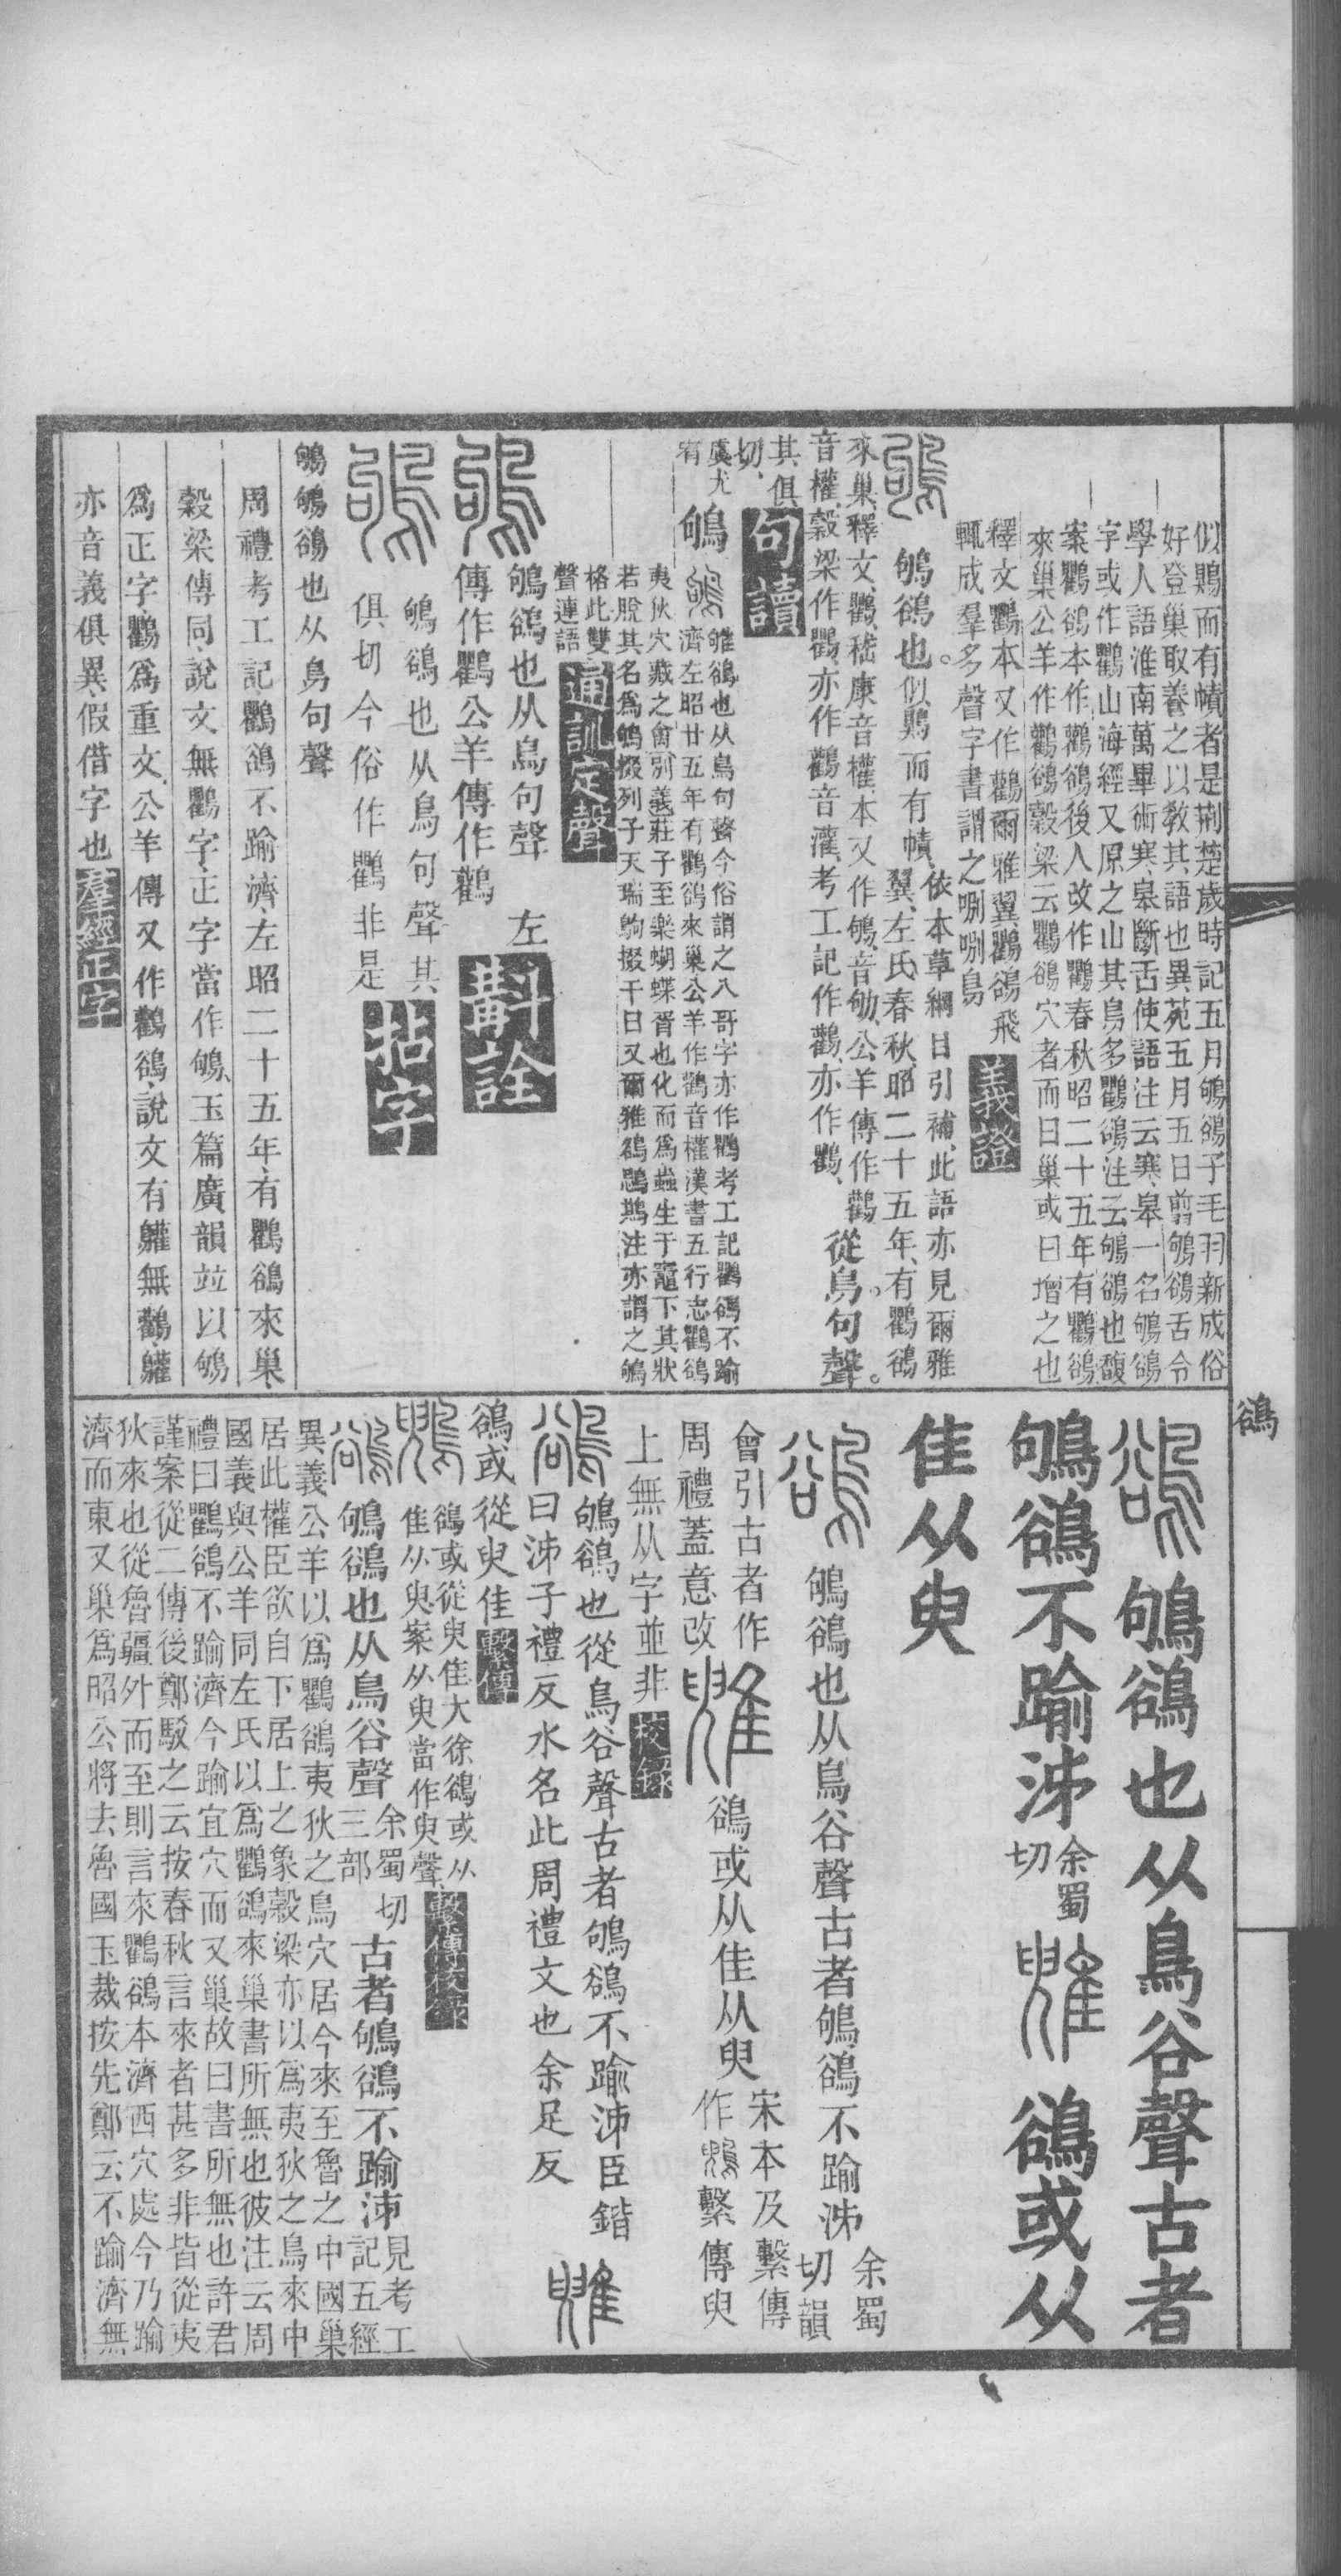 似鵙而有幘者是荆楚歲時記五月鴝鵒子毛羽新成俗
好登巢取養之以教其語也異苑五月五日翦鴝鵒舌令
學人語淮南萬畢術寒皋斷舌使語注云寒皋一名鴝鵒
字或作鸜山海經又原之山其鳥多鸜鵒注云鴝鵒也馥
案鸜鵒本作鸛鵒後人改作鸜春秋昭二十五年有鸜鵒
來巢公羊作鸛鵒穀梁云鸜鵒穴者而曰巢或曰增之也
釋文鸜本又作鸛爾雅翼鸜鵒飛
輒成羣多聲字書謂之唎唎鳥
義證
鴝鵒也。似鵙而有幘、依本草綱目引補、此語亦見爾雅
翼、左氏春秋、昭二十五年、有鸜鵒
來巢、釋文、鸜、嵇康音權、本又作鴝、音劬、公羊傳作鸛
音權、穀梁作鸜、亦作鸛、音灌、考工記作鸛、亦作鸜、從鳥。句聲。
其俱
切、
句讀
虞尤
宥
鴝
雊鵒也从鳥句聲今俗謂之八哥字亦作鸜考工記鸜鵒不踰
濟左昭廿五年有鸜鵒來巢公羊作鸛音權漢書五行志鸜鵒
夷狄穴藏之禽別義莊子至樂蝴蝶胥也化而爲蟲生于竈下其狀
若脫其名爲鴝掇列子天瑞鴝掇千日又爾雅鵅鵋䳢注亦謂之鴝
格此雙
聲連語
通訓定聲
鴝鵒也从鳥句聲 左
傳作鸜公羊傳作鸛
斠詮
鴝鵒也从鳥句聲其
俱切今俗作鸜非是
拈字
鴝鴝鵒也从鳥句聲
周禮考工記、鸜鵒不踰濟、左昭二十五年、有鸜鵒來巢、
穀梁傳同、說文無鸜字、正字當作鴝、玉篇廣韻竝以鴝
爲正字、鸜爲重文、公羊傳又作鸛鵒、說文有雚無鸛、雚
亦音義俱異、假借字也
羣經正字
鵒
鵒 鴝鵒也从鳥谷聲古者
鴝鵒不踰泲
余蜀
切
鵒或从
隹从臾
鵒 鴝鵒也从鳥谷聲古者鴝鵒不踰泲
余蜀
切韻
會引古者作
周禮蓋意改
鵒或从隹从臾
宋本及繫傳
作
繫傳臾
上無从字並非
校錄
鵒 鴝鵒也從鳥谷聲古者鴝鵒不踰泲臣鍇
曰泲子禮反水名此周禮文也余足反
鵒或從臾隹
繫傳
鵒或從臾隹大徐鵒或从
隹从臾案从臾當作臾聲
繫傳校錄
鵒 鴝鵒也从鳥谷聲
余蜀切
三部
古者鴝鵒不踰泲
見考工
記五經
異義公羊以爲鸜鵒夷狄之鳥穴居今來至魯之中國巢
居此權臣欲自下居上之象穀梁亦以爲夷狄之鳥來中
國義與公羊同左氏以爲鸜鵒來巢書所無也彼注云周
禮曰鸜鵒不踰濟今踰宜穴而又巢故曰書所無也許君
謹案從二傳後鄭駁之云按春秋言來者甚多非皆從夷
狄來也從魯疆外而至則言來鸜鵒本濟西穴處今乃踰
濟而東又巢爲昭公將去魯國玉裁按先鄭云不踰濟無